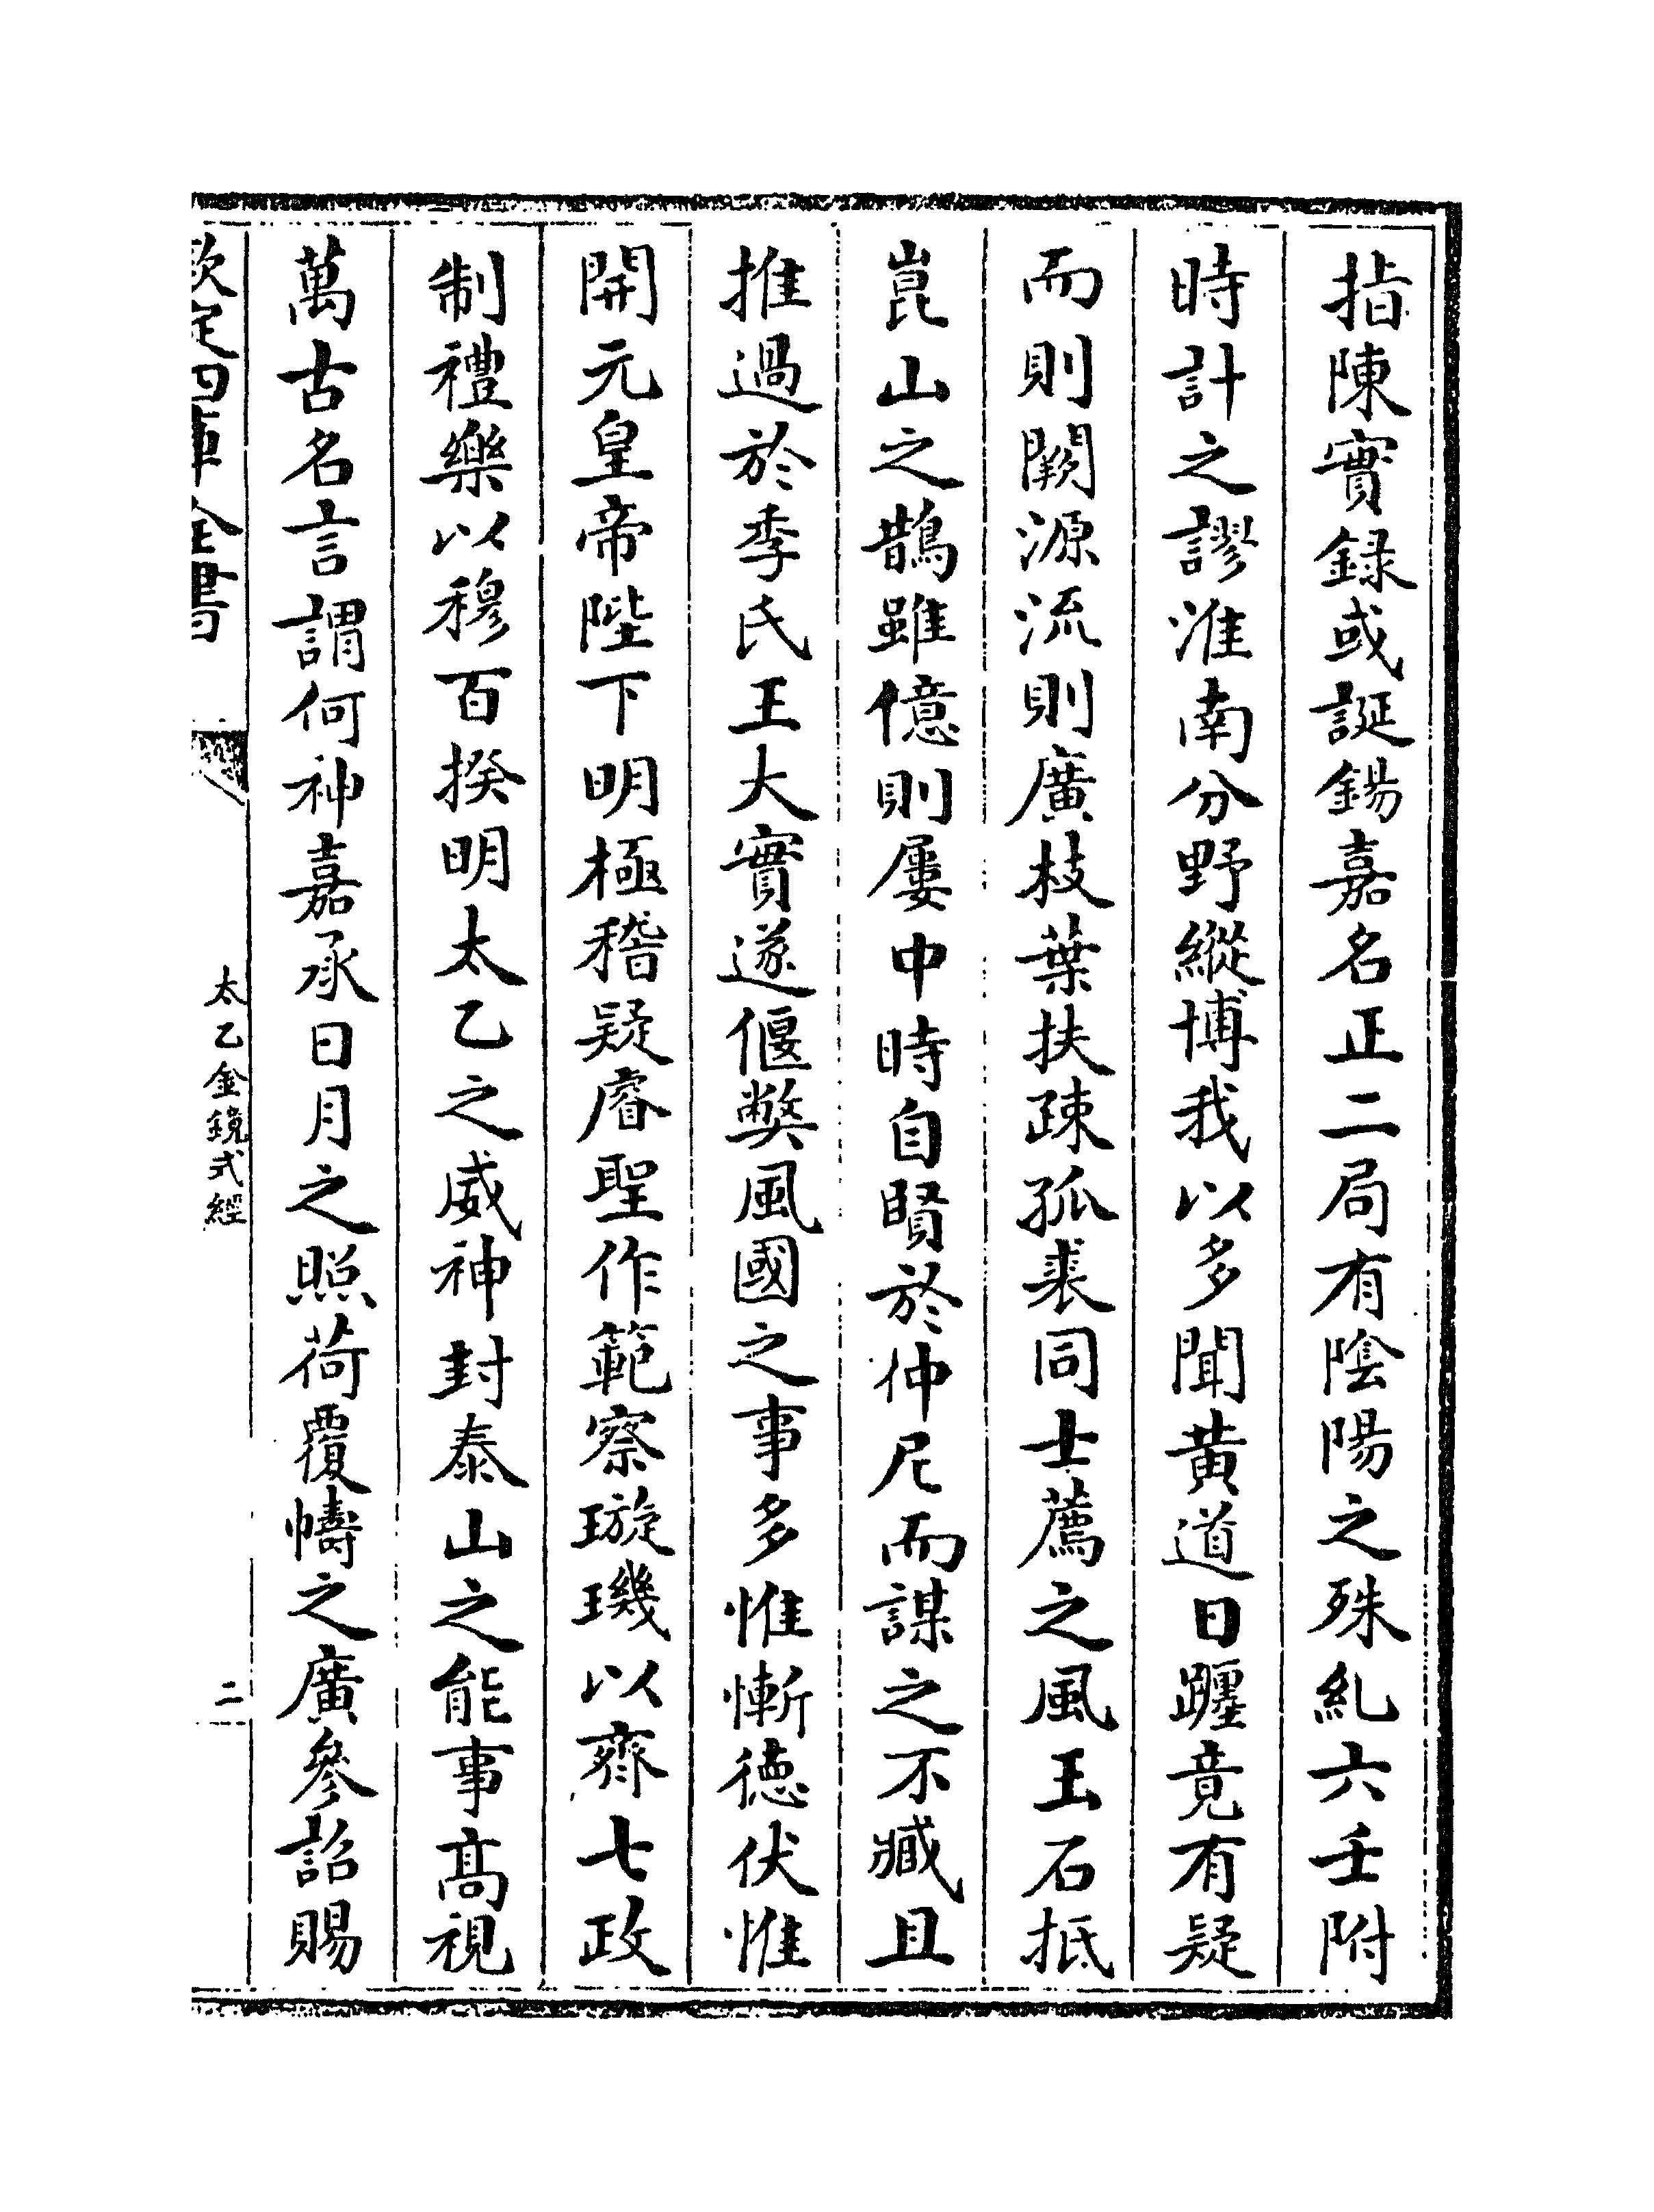 指陳實録或誕錫嘉名正二局有陰陽之殊糺六壬附
時計之謬淮南分野縱博我以多聞黄道日躔竟有疑
而則闕源流則廣枝葉扶疎孤裘同士薦之風玉石抵
崑山之鵲雖億則屢中時自賢於仲尼而謀之不臧且
推過於季氏王大實遂偃獘風國之事多惟慚徳伏惟
開元皇帝陛下明極稽疑睿聖作範察璇璣以齊七政
制禮樂以穆百揆明太乙之威神封泰山之能事髙視
萬古名言謂何神嘉承日月之照荷覆幬之廣參詔賜
欽定四庫全書
太乙金鏡式經
二